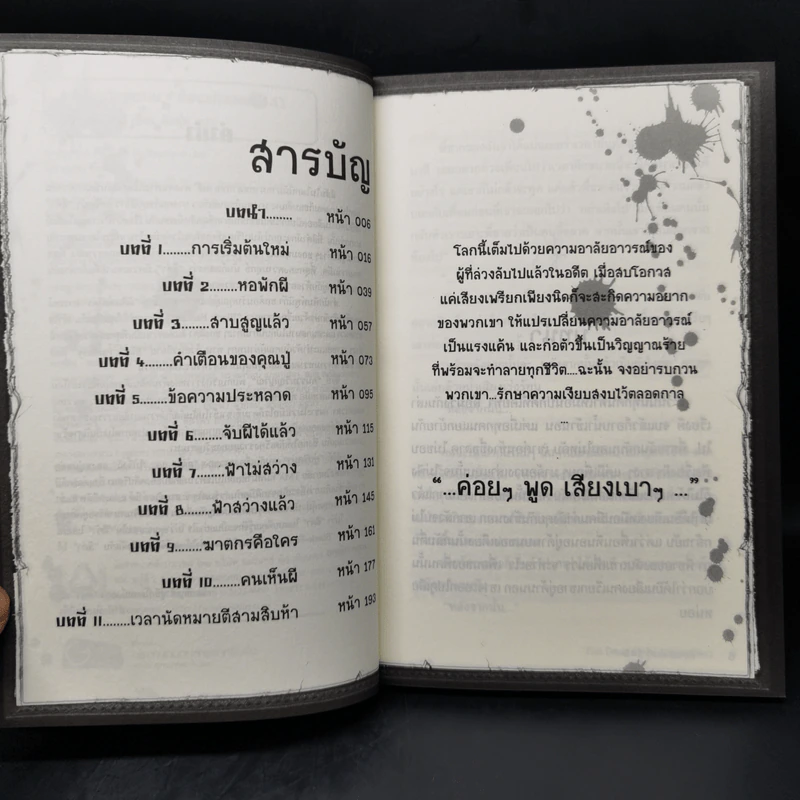 สารบัญ
บทนำ........ หน้า 006
บทที่ 1........การเริ่มต้นใหม่ หน้า 016
บทที่ 2........หอพักผี หน้า 039
บทที่ 3........สาบสูญแล้ว หน้า 057
บทที่ 4........คำเตือนของคุณปู่ หน้า 073
บทที่ 5........ข้อความประหลาด หน้า 095
บทที่ 6........จับผีได้แล้ว หน้า 115
บทที่ 7........ฟ้าไม่สว่าง หน้า 131
บทที่ 8........ฟ้าสว่างแล้ว หน้า 145
บทที่ 9........ฆาตกรคือใคร หน้า 161
บทที่ 10........คนเห็นผี หน้า 177
บทที่ 11........เวลานัดหมายตีสามสิบห้า หน้า 193
โลกนี้เต็มไปด้วยความอาลัยอาวรณ์ของ
ผู้ที่ล่วงลับไปแล้วในอดีต เมื่อสบโอกาส
แค่เสียงเพรียกเพียงนิดก็จะสะกิดความอยาก
ของพวกเขา ให้แปรเปลี่ยนความอาลัยอาวรณ์
เป็นแรงแค้น และก่อตัวขึ้นเป็นวิญญาณร้าย
ที่พร้อมจะทำลายทุกชีวิต....ฉะนั้น จงอย่ารบกวน
พวกเขา...รักษาความเงียบสงบไว้ตลอดกาล
...
“...ค่อยๆ พูด เสียงเบาๆ ...”